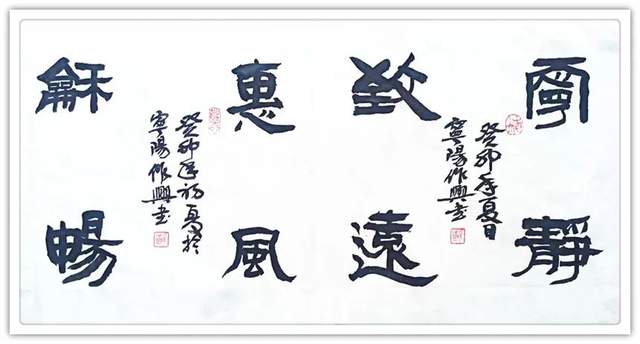 寧靜
癸卯年夏日
寧陽作興書
致遠
惠風
癸卯年初夏於
寧陽作興書
龢暢